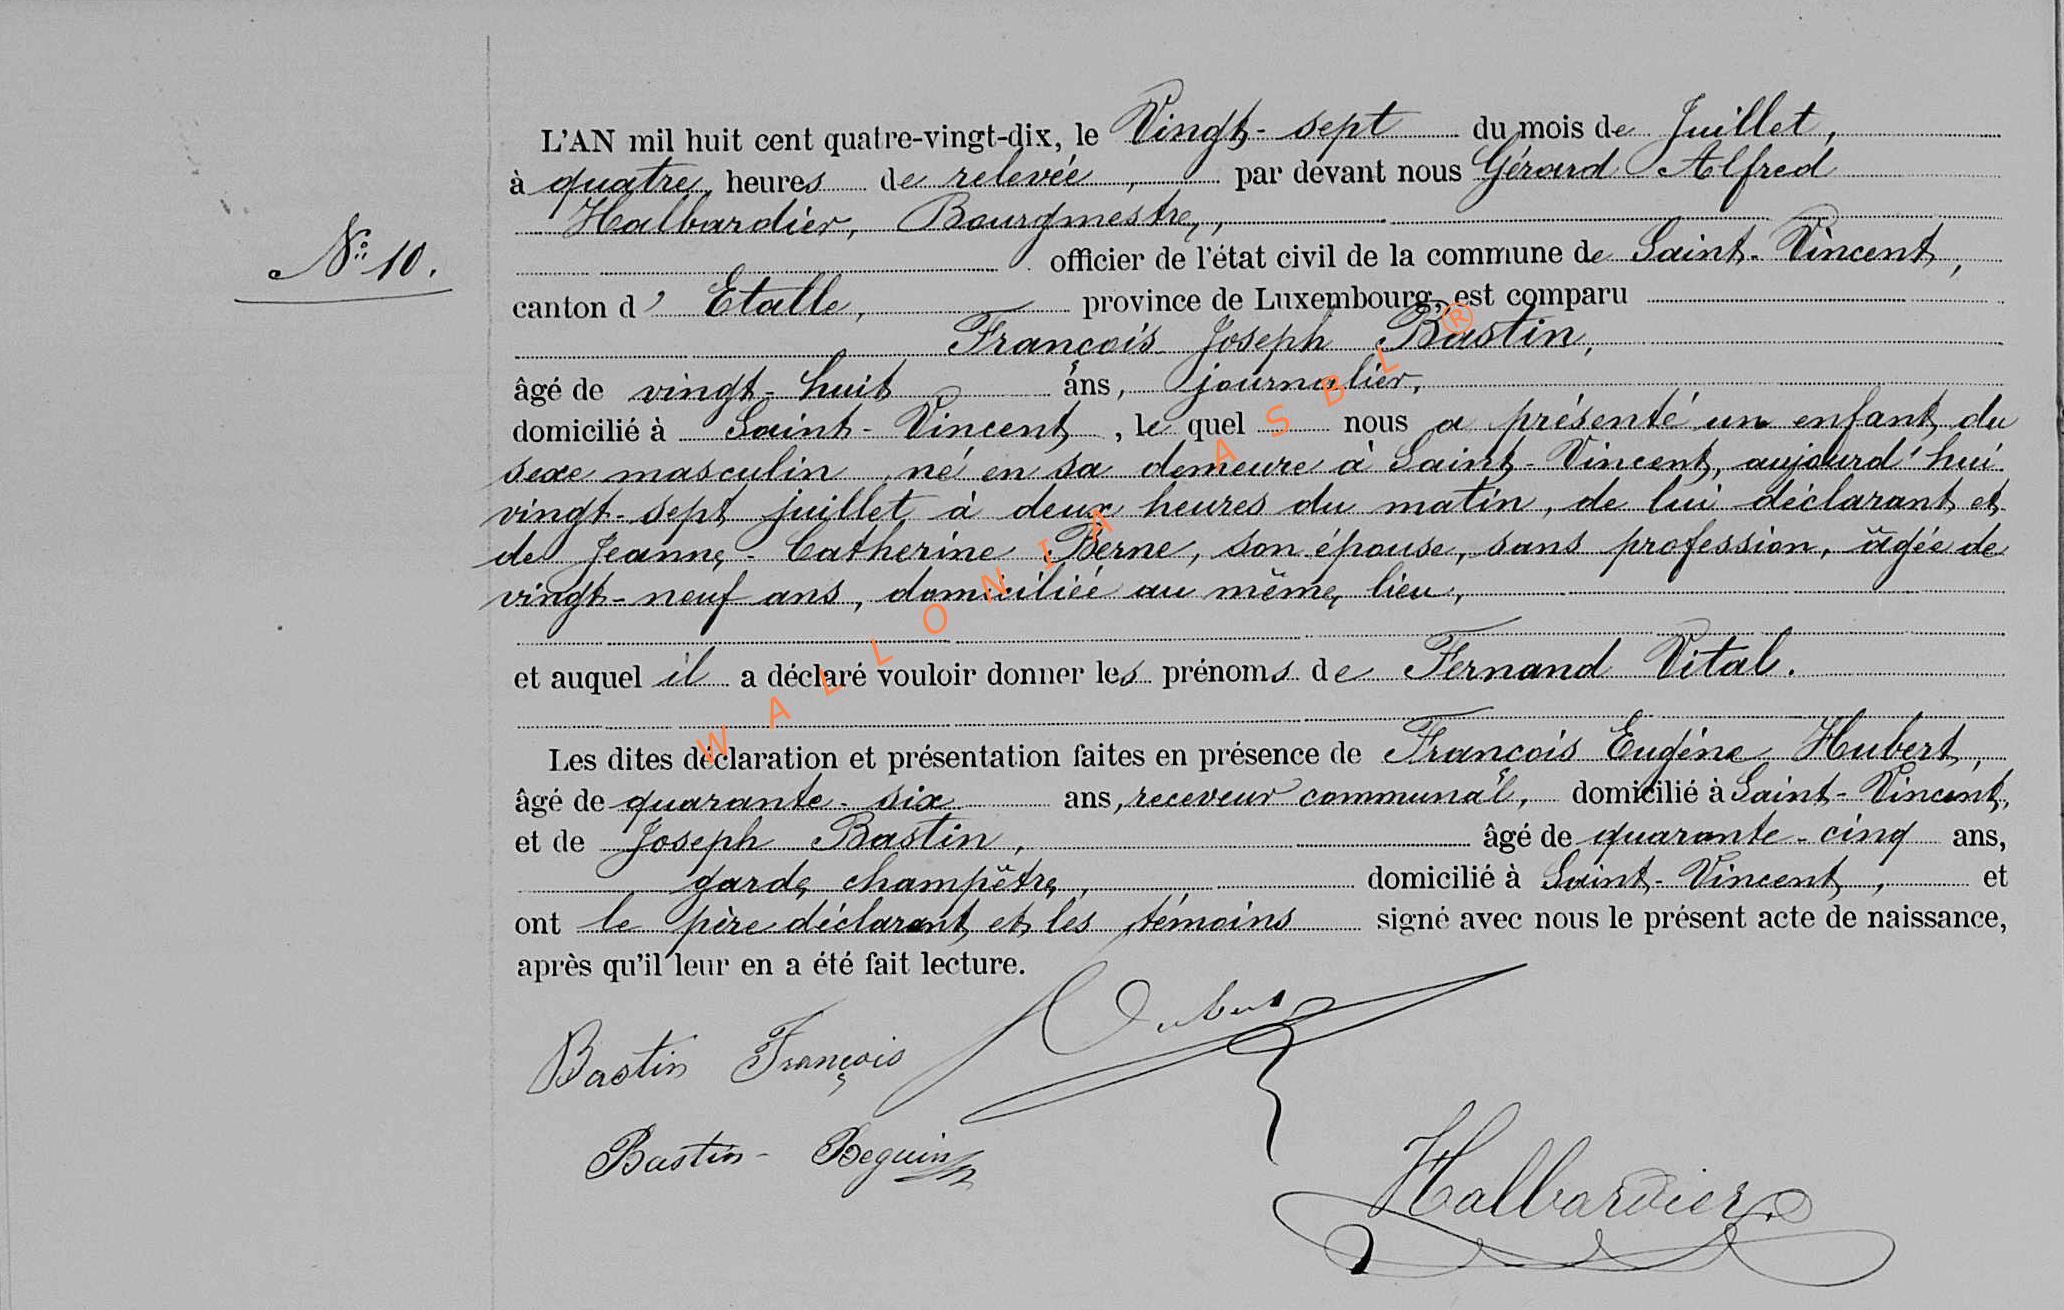 L'AN mil huit cent quatre-vingt-dix, le Vingt-sept du mois de Juillet,
à quatre heures de relevée, par devant nous Gérard Alfred
Halbardier, Bourgmestre,
officier de l'état civil de la commune de Saint-Vincent,
N° 10.
canton d' Etalle, province de Luxembourg, est comparu
François Joseph Bastin,
âgé de vingt-huit ans, journalier,
domicilié à Saint-Vincent, le quel nous a présenté un enfant du
sexe masculin, né en sa demeure à Saint-Vincent, aujourd'hui
vingt-sept juillet à deux heures du matin, de lui déclarant et
de Jeanne-Catherine Berne, son épouse, sans profession, âgée de
vingt-neuf ans, domiciliée au même lieu,
et auquel il a déclaré vouloir donner les prénoms de Fernand Vital.
Les dites déclaration et présentation faites en présence de François Eugène Hubert,
âgé de quarante-six ans, receveur communal, domicilié à Saint-Vincent,
et de Joseph Bastin, âgé de quarante-cinq ans,
garde champêtre, domicilié à Saint-Vincent, et
ont le père déclarant et les témoins signé avec nous le présent acte de naissance,
après qu'il leur en a été fait lecture.
Hubert
Bastin François
Bastin-Beguin
Halbardier
WALLONIA ASBL ®